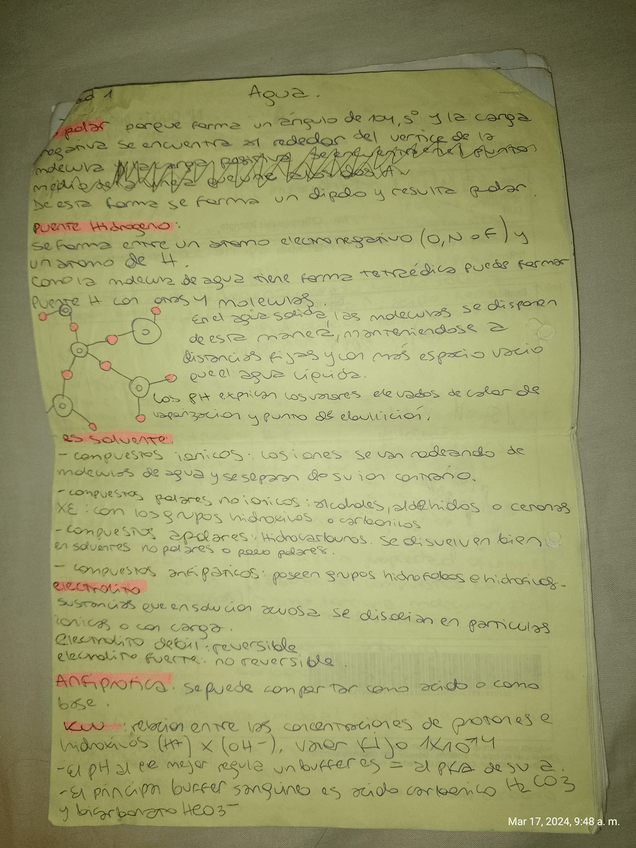 ad 1 Agua.
polar porque forma un ángulo de 104,5° y la carga
negativa se encuentra al rededor del vertice de la
molecula
De esta forma se forma un dipolo y resulta polar.
puente Hidrogeno:
Se forma entre un atomo electronegativo (O, N o F) y
un atomo de H.
Como la molecula de agua tiene forma tetraédica puede formar
Puente H con otras 4 moleculas.
En el agua solida, las moleculas se disponen
de esta manera, manteniendose a
distancias fijas y con más espacio vacio
que el agua liquida.
Los PH explican los valores elevados de calor de
vaporizacion y punto de ebullición.
es solvente
- compuestos ionicos: los iones se van rodeando de
moleculas de agua y se separan de su ion contrario.
- compuestos polares no ionicos: alcoholes, aldehidos o cetonas
XE: con los grupos hidroxilos o carbonilos
- compuestos apolares: Hidrocarburos. Se disuelven bien
en solventes no polares o poco polares.
- compuestos anfipáticos: poseen grupos hidrofobos e hidrofilos.
electrolito
sustancias que en solucion acuosa se disocian en particulas
ionicas o con carga.
Electrolito debil: reversible
electrolito fuerte: no reversible.
Anfiprotica: se puede comportar como acido o como
base.
Kw: relacion entre las concentraciones de protones e
hidroxilos (H+) x (OH-), valor fijo 1x10-14
- El pH al que mejor regula un buffer es = al pKA de su a.
- El principal buffer sanguineo es acido carbonico H2CO3
y bicarbonato HCO3-
Mar 17, 2024, 9:48 a. m.